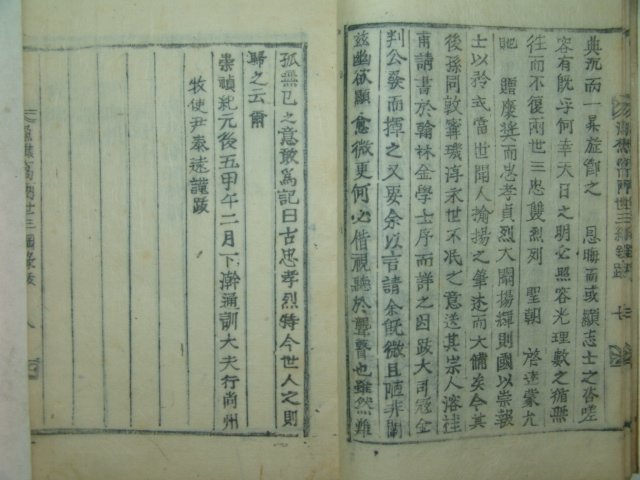 典況而一杲旋卹之 恩晦而或顯志士之咨嗟
容有旣乎何幸天日之明公照容光理數之循無
往而不復兩世三忠雙烈列 聖朝 啓達蒙允
贈褒奬而忠孝貞烈大闡揚輝則國以崇報
士以矜式當世聞人揄揚之筆述而大備矣今其
後孫同敦 璣淳永世不泯之意送其宗人溶桂
甫請書於翰林金學士序而詳之因跋大司冠金
判公發而揮之又要余以言請余旣微且陋非闡
玆幽欲顯愈微更何必借視聽於聾瞽也雖然難
孤無已之意敢爲記曰古忠孝烈特今世人之則
歸之云爾
崇禎紀元後五甲午二月下澣通訓大夫行尚州
牧使尹泰遠謹跋